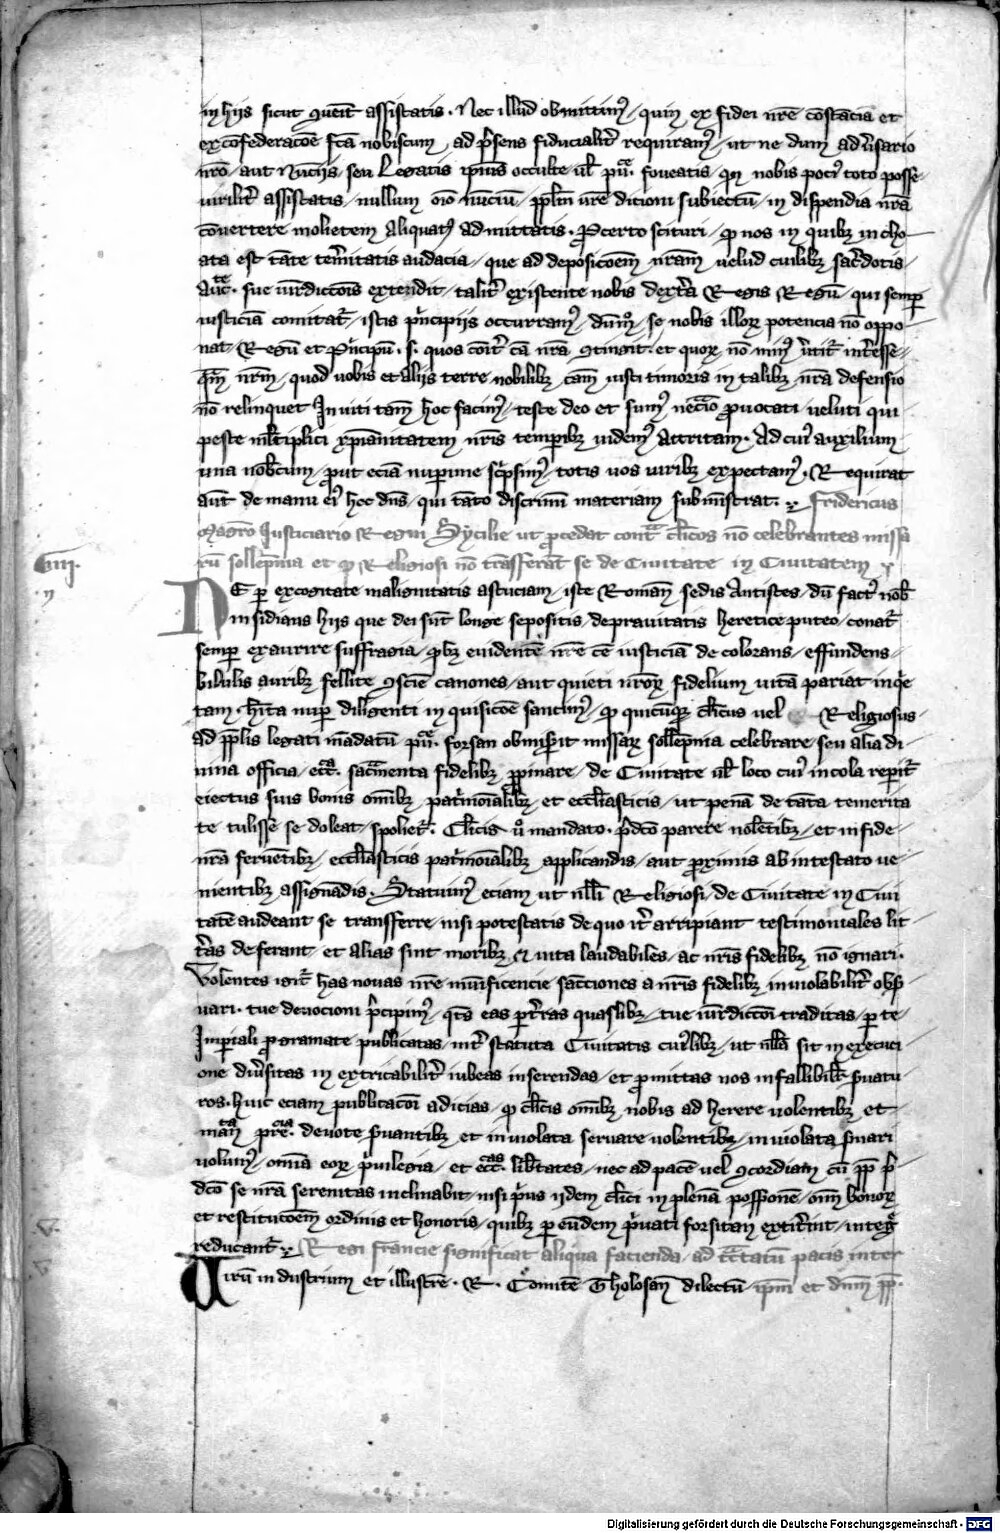 in hiis sicut ꝯueīt assistatis. Nec illud obmittimꝰ / quin ex fidei nr̄e cōstācia et
ex cōfederacōe fc̄a nobiscum / ad p̄sens fiducialit̄ requiramꝰ / ut ne dum aduersario
nr̄o / aut Nūciis / seu Legatis ipsius occulte ul̄ foueatis / nobis toto posse
uirilit̄ assistatis / nullum nūciū / ur̄e dicioni subiectū / in dispendia nr̄a
cōuertere molietem Aliquatꝰ admittatis. Procerto scituri / ꝙ nos in quibꝫ incho
ata est tāte tem̄itatis audacia / que ad deposicōem nr̄am uelud cuilibꝫ sac̄dotis
Auc̄t. siue iurdictōis extendit / talit̄ existente nobis dext̄a Regis Regū / qui semper
iusticiā comitat̄ / istis p̄ncipiis occurramꝰ / dūmō se nobis illoꝝ potencia nō oppo
nat / Regū et P̄ncipū .s. quos cā nr̄a ꝯtingit. et quoꝝ nō minꝰ int̄esse
nr̄m / quod uobis et aliis terre nobilibꝫ cām iusti timoris in talibꝫ nr̄a defensio
nō relinquet Inuiti tam̄ hoc facimꝰ / teste deo et sumꝰ prouocati / ueluti qui
peste ml̄tiplici xp̄ianitatem nr̄is temporibꝫ uidemꝰ Attritam. Ad cuiꝰ auxilium
una nobcum / prout eciā nuperime sc̄psimꝰ / totis uos uiribꝫ expectamꝰ. Requirat
aut̄ de manu eiꝰ hoc dn̄s / qui tāto discrimī materiam subministrat. Fridericus
Magr̄o Iusticiario Regni Sycilie ut procedat cont̄ cl̄icos nō celebrantes missa
rū sollēpnia et ꝙ Religiosi nō trāsferāt se de Ciuitate in Ciuitatem
iiij.
n
Nᴇ per excogitate malignitatis astuciam / iste Roman̄ sedis Antistes / dū factꝰ nob̄
insidians hiis que dei sūt longe sepositis / deprauitatis heretice puteo / conat̄
semper exaurire suffragia / euidentē nr̄e cē iusticiā decolorans / effundens
bibulis auribꝫ fellite ꝯsciē canones / aut quieti nr̄oꝝ fidelium uitā pariat inqe
tam. hita nuper diligenti inquisicōe sancimꝰ / ꝙ quicūqꝫ cl̄icus uel Religiosus
ad pp̄lis legati mādatū forsan obmis̄it missaꝝ sollēpnia celebrare / seu alia di
uina officia / ecc̄. sac̄menta fidelibꝫ / de Ciuitate ul̄ loco cuiꝰ incola rep̄it̄
eiectus suis bonis omībꝫ pat̄monialibꝫ / et eccl̄iasticis / ut penā de tāta temerita
te tulisse se doleat / spoliet̄. Cl̄icis mandato. p̄dc̄o parere nolētibꝫ / et in fide
nr̄a feruētibꝫ / eccl̄iasticis pat̄monialibꝫ applicandis / aut proximis ab intestato ue
nientibꝫ assignādis. Statuimꝰ eciam ut nll̄i Religiosi / de Ciuitate in Ciui
tatē audeant se transferre / nisi potestatis de quo it̄ arripiant testimoniales lit
t̄as deferant / et alias sint moribꝫ et uita laudabiles / ac nr̄is fidelibꝫ nō ignari.
Volentes igit̄ has nouas nr̄e mūificencie sācciones a nr̄is fidelibꝫ inuiolabilit̄ obs̄
uari. tue deuocioni p̄cipimꝰ / qt̄s eas per t̄ras quaslibꝫ / tue iurdictōi traditas / per te
Imperiali programate publicatas / int̄ statuta Ciuitatis cuiꝰlibꝫ / ut nll̄a sit in execuci
one diu̅sitas inextricabilit̄ iubeas inserendas / et promittas nos infallibilit̄ s̄uatu
ros. huic eciam publicacōi adicias / ꝙ cl̄icis omībꝫ nobis adherere uolentibꝫ et
deuote s̄uantibꝫ et inuiolata seruare uolentibꝫ / inuiolata s̄uari
uolumꝰ / omīa eoꝝ p̄uilegia / et ecc̄as lib̄tates / nec ad pacē uel ꝯcordiam cū pp̄ p̄
dc̄o se nr̄a serenitas inclinabit / nisi p̄us ijdem cl̄ici in plenā possessionē / om̄ bonoꝝ
et restitucōem ordinis et honoris / quibꝫ per eūdem p̄uati forsitan extit̄int / inteḡ
reducant̄. Regi Francie significat aliqua facienda / ad tc̄tatū pacis inter
Uirū industrium et illustrē. R. Comitē Tholosan̄ dilectū ipm̄ et dnm̄ pp̄.
Digitalisierung gefördert durch die Deutsche Forschungsgemeinschaft - DFG